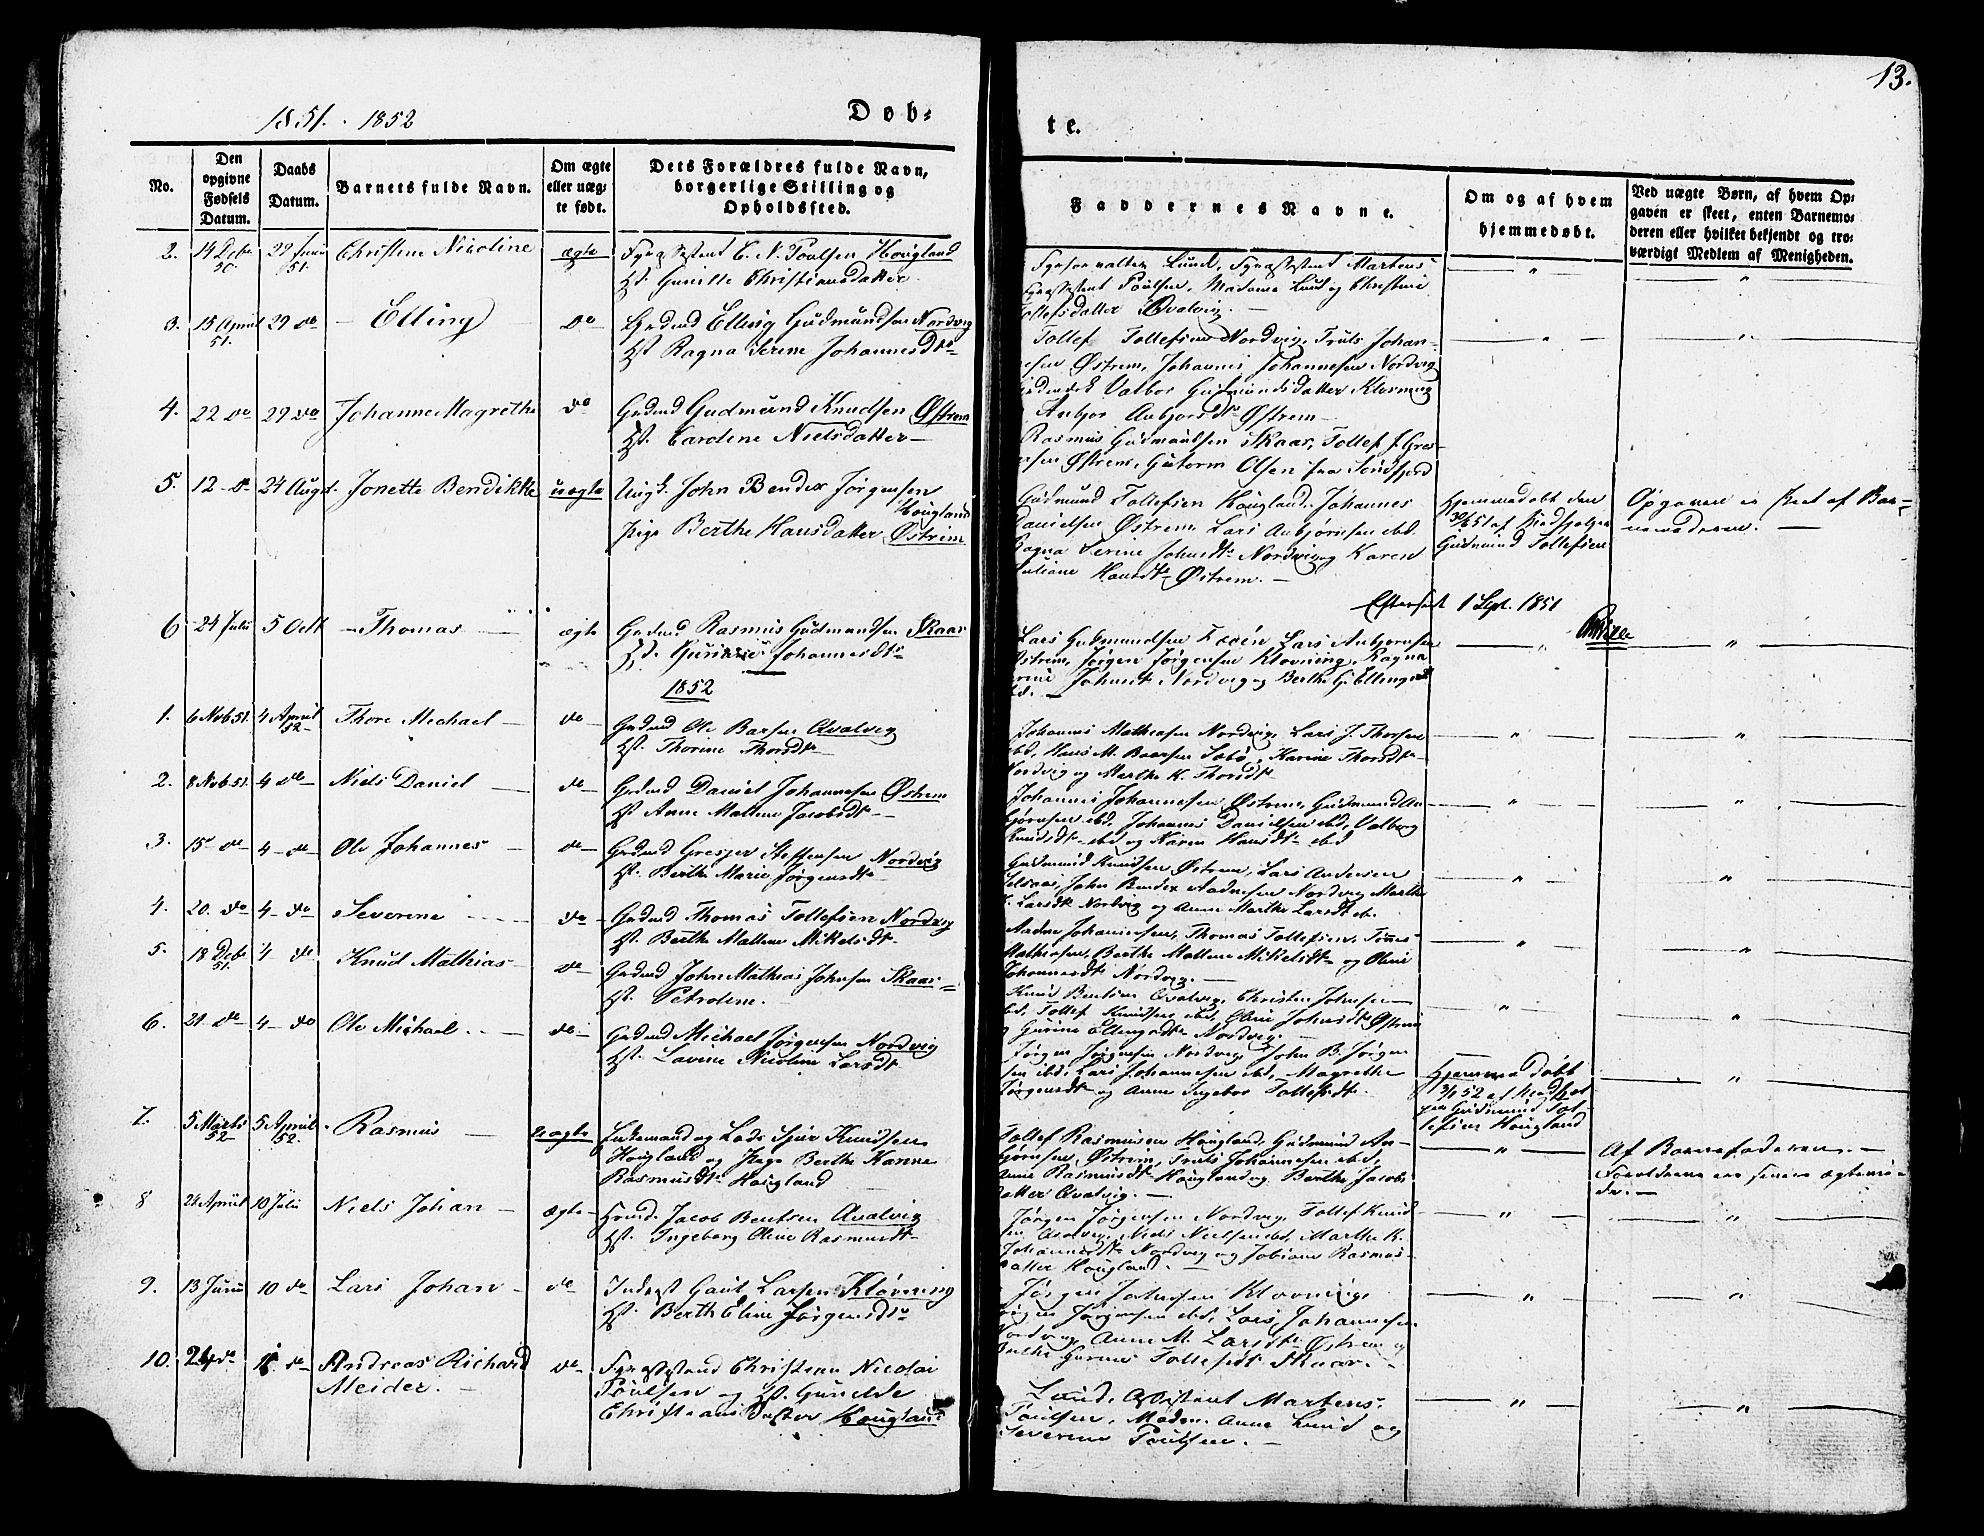 13.
1851. - 1852
Döb-
te.
No.
Den opgivne Fødsels Datum.
Daabs Datum.
Barnets fulde Navn.
Om ægte eller uæg-
te født.
Dets Forældres fulde Navn,
borgerlige Stilling og
Opholdssted.
Faddernes Navne.
Om og af hvem
hjemmedøbt.
Ved uægte Børn, af hvem Op-
gaven er skeet, enten Barnemo-
deren eller hvilket bekjendt og tro-
værdigt Medlem af Menigheden.
2. 14 Debr 50. 29 Juni 51. Christine Nicoline ægte Fyrassistent C. N. Poulsen Hougland
Hst. Gunilde Christiansdatter.
Fyrforvalter Lund, Fyrassistent Martens
Fyrassistent Poulsen, Madame Lund og Christine
Tollefsdatter Qvalvig. —
3. 15 April 51. 29 do Elling do Grdmd Elling Gudmundsen Nordvig
Hst Ragna Serine Johannesdtr
Tollef Tollefsen Nordvig, Truls Johan-
nesen Østrem, Johannes Johannesen Nordvig
Valbor Gudmundsdatter Klovning
Anbjor Anbjorsdtr Østrem —
4. 22 do 29 do Johanne Magrethe do Grdmd Gudmund Knudsen Østrem
Hst. Caroline Nielsdatter —
Rasmus Gudmundsen Skaar, Tollef J. Gres-
Østrem, Gutorm Olsen fra Søndfjord
5. 12 do 24 Augst. Jonette Bendikke uægte Ungk. John Bendix Jørgensen
Hougland
Pige Berthe Hansdatter Østrem
Gudmund Tollefsen Hougland, Johannes
Danielsen Østrem, Lars Anbjørnsen ibd.
Ragna Serine Johnsdtr Nordvig og Karen
Juliane Hansdtr Østrem. —
Hjemmedøbt den
af
Gudmund Tollefsen
Opgaven er skeet af Bar-
nemoderen. —
1 Sept. 1851
6 24 Juli 5 Octb Thomas ægte Grdmd Rasmus Gudmundsen Skaar
Hst. Johannesdtr
Lars Gudmundsen Lars Anbjørnsen
Østrem, Jørgen Jørgensen Klovning, Ragna
Serine Johnsdt Nordvig og Berthe G. Ellingsdtr
1852
1. 6 Nvb 51. 4 April 52 Thore Michael — do Grdmd Ole Baarsen Qvalvig
Hst. Thorine Thorsdtr
Johannes Mathiasen Nordvig, Lars J. Thorsen
ibd, Hans M. Baarsen Sebø, Karine Thorsdtr
Nordvig og Marthe K. Thorsdtr
2. 8 Nvb 51. 4 do Niels Daniel — do Grdmd Daniel Johannesen Østrem
Hst Anne Malene Jacobsdtr
Johannes Johannesen Østrem, Gudmund An-
bjørnsen ibd, Johannes Danielsen ibd, Valborg
Knudsdtr ibd og Karen Hansdtr ibd
3. 15 do 4 do Ole Johannes — do Grdmd Gresjer Steffensen Nordvig
Hst. Berthe Marie Jørgensdtr
Gudmund Knudsen Østrem, Lars Andersen
John Bendix Aadnesen Nordvig, Marthe
Larsdtr Nordvig og Anne Marthe Larsdt ib.
4. 20. do 4 do Severine do Grdmd Thomas Tollefsen Nordvig
Hst. Berthe Mallene Mikelsdtr
Aadne Johannesen, Thomas Tollefsen, Tønnes
Mathiesen, Berthe Mallene Mikelsdtr og Oline
Johannesdt Nordvig. —
5. 18 Debr 51. 4 do Knud Mathias do Grdmd John Mathias Johnsen Skaar
Hst. Petroline.
Knud Bentsen Qvalvig, Christen Johnsen
ibd, Tollef Knudsen ibd, Oline Johnsdt Østrem
og Gurine Ellingsdtr Nordvig. —
6. 21 do 4 do Ole Michael. — do Grdmd Michael Jørgensen Nordvig
Hst. Lavine Nicoline Larsdt
Jørgen Jørgensen Nordvig, John B. Jørgen-
sen ibd, Lars Johannesen ibd, Magrethe
Jørgensdt og Anne Ingebor Tollefsdt.
Hjemmedøbt
3/1 52 af Medhjel-
per Gudmund Tol-
lefsen Hougland
7. 5 Marts 52 5 April 52. Rasmus — uægte Enkemand og Lods Sjur Knudsen
Hougland og Pige Berthe Karine
Rasmusdtr Hougland
Tollef Rasmusen Hougland, Gudmund An-
bjørnsen Østrem, Truls Johannesen ibd,
Anne Rasmusdt Hougland og Berthe Jacobs-
datter Qvalvig. —
Af Barnefaderen. —
Forældrene ere senere ægtevie-
de. —
8 24 April 10 Juli Niels Johan — ægte Jacob Bentsen Qvalvig
Hst. Ingeborg Oline Rasmusdtr
Jørgen Jørgensen Nordvig, Tollef Knud-
sen Qvalvig, Niels Nielsen ibd, Marthe K.
Johannesdtr Nordvig og Tobiane Rasmus-
datter Hougland. —
9. 13 Juni 10 do Lars Johan — do Inderst Gaut Larsen Klovning
Hst. Berthe Eline Jørgensdtr
Jørgen Johnsen Klovning,
Jørgen Jørgensen ibd, Lars Johannesen
Nordvig, Anne M. Larsdtr Østrem og
Gurine Tollefsdt Skaar. —
10. 24 do do Andreas Richard do Fyrassistend Christian Nicolai
Meider. — Poulsen og Hst. Gunilde
Christiansdatter Hougland
Lund, Assistent Martens,
Poulsen, Madm. Anne Lund og
Severine Poulsen. —